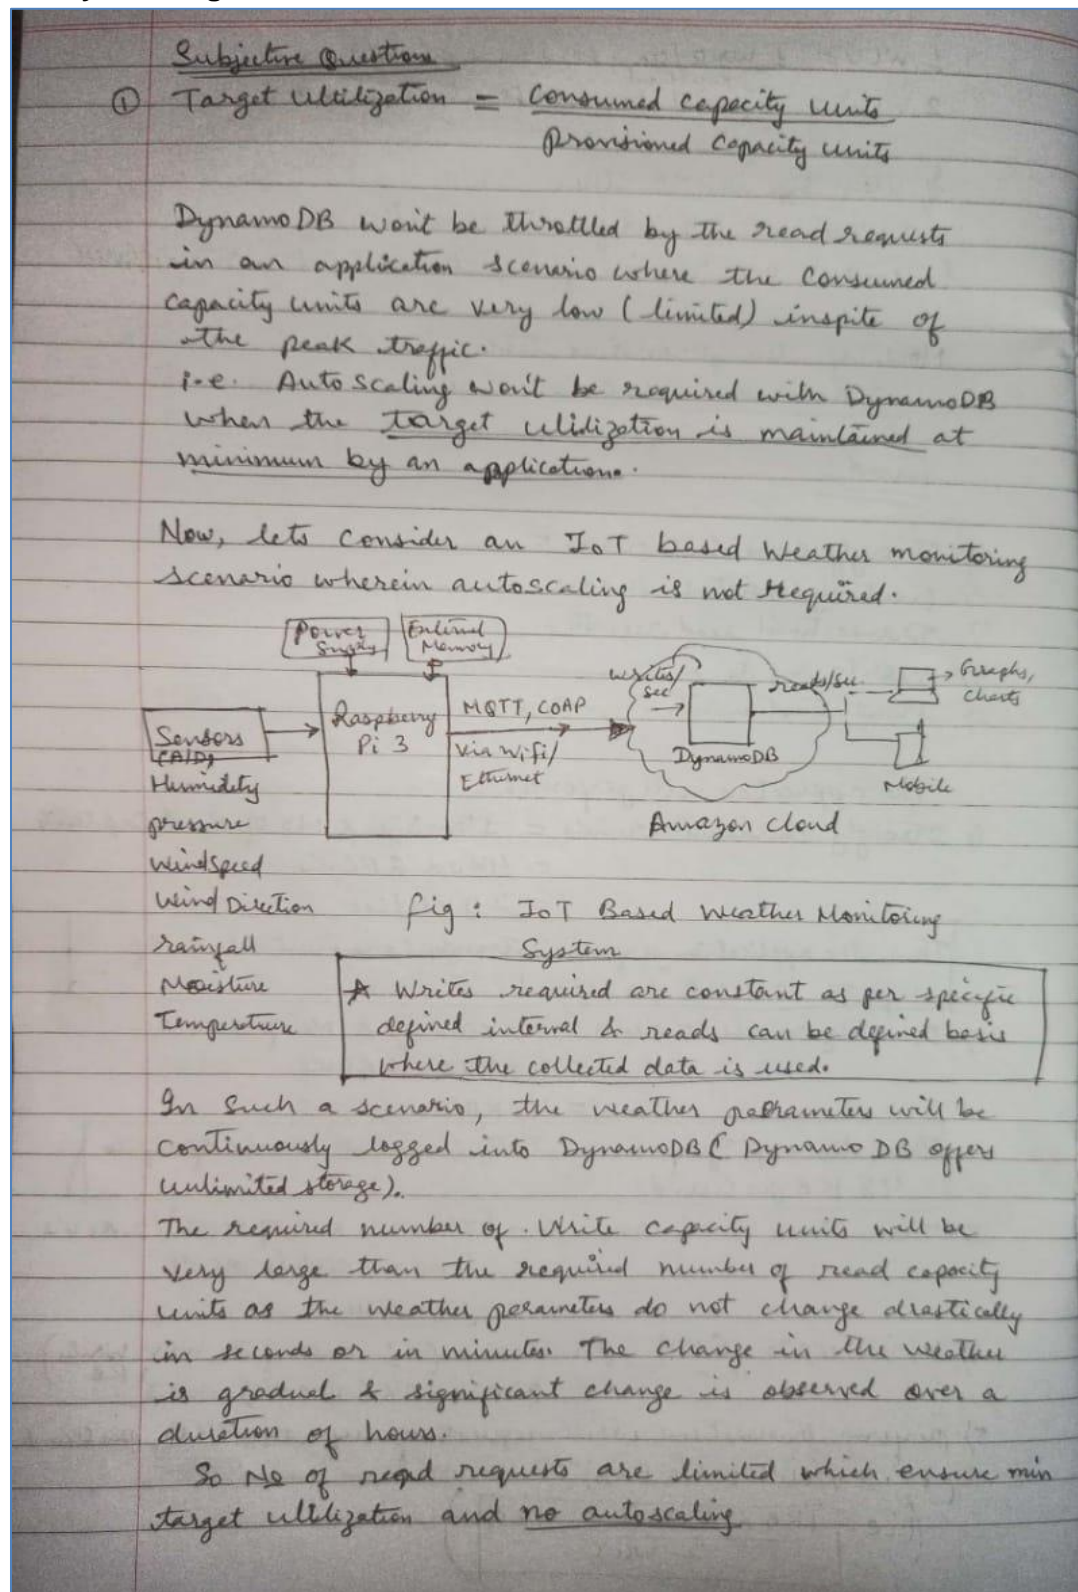 Subjective Questions
① Target Utilization = Consumed capacity units
Provisioned Capacity units
DynamoDB won't be throttled by the read requests
in an application scenario where the Consumed
capacity units are very low (limited) inspite of
the peak traffic.
i.e. Auto scaling won't be required with DynamoDB
when the target utilization is maintained at
minimum by an application.
Now, lets consider an IoT based Weather monitoring
scenario wherein autoscaling is not required.
Power Supply
External Memory
Sensors
(A/D)
Raspberry Pi 3
MQTT, COAP
Via Wifi/ Ethernet
writes/ sec
DynamoDB
reads/sec
Graphs, Charts
Mobile
Amazon Cloud
Humidity
pressure
WindSpeed
Wind Direction
rainfall
Moisture
Temperature
fig : IoT Based Weather Monitoring
System
* Writes required are constant as per specific
defined interval & reads can be defined basis
where the collected data is used.
In Such a scenario, the weather parameters will be
continuously logged into DynamoDB ( Dynamo DB offers
unlimited storage).
The required number of Write capacity units will be
very large than the required number of read capacity
units as the weather parameters do not change drastically
in seconds or in minutes. The change in the weather
is gradual & significant change is observed over a
duration of hours.
So No of read requests are limited which ensure min
target utilization and no autoscaling